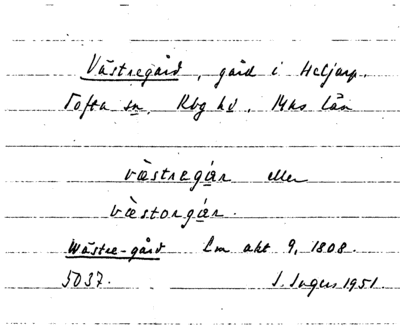 Västregård, gård i Heljarp.
Tofta sn, Kbg hd. Mhs län
västregår eller
västorgår.
Wästre-gård Lm akt 9, 1808.
5037. I. Ingers 1951.